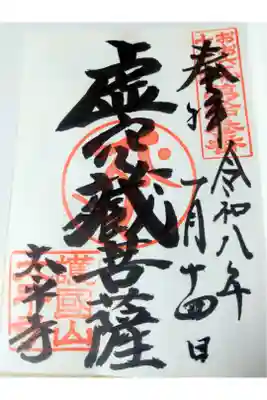 奉拝
令和八年一月十四日
虚空蔵菩薩
太平寺
護國山